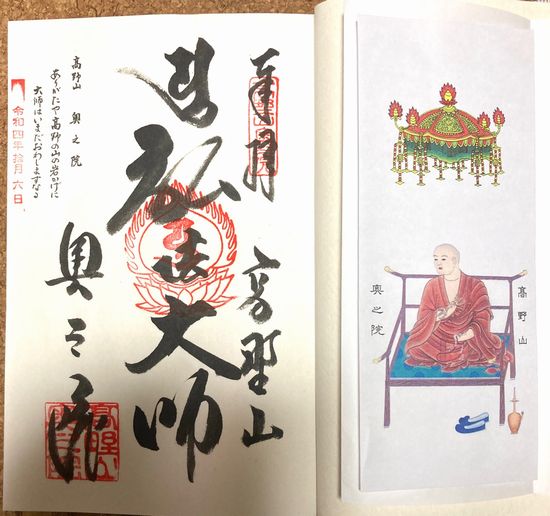 高野山
奥之院
奉拝
高野山
弘法大師
奥之院
高野山 奥之院
ありがたや高野の山の岩かげに
大師はいまだおわしますなる
令和四年拾月六日